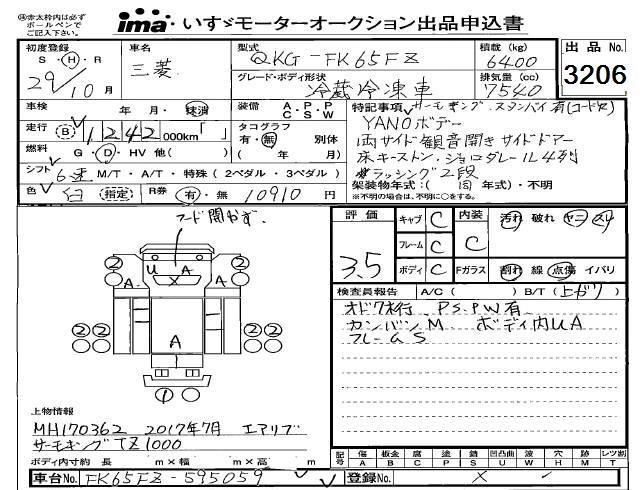 ㊟赤太枠内は必ず
ボールペンで
ご記入下さい。
ima いすゞモーターオークション出品申込書
初度登録 車名 型式 積載 (kg) 出品No.
S・H・R 三菱 QKG-FK65FZ 6400
29年10月 グレード・ボディ形状 排気量 (cc) 3206
冷蔵冷凍車 7540
車検 年・月・抹消 装備 A.P.P C.S.W 特記事項 サーモキング・スタンバイ有(コード)
走行 (B) 1242 000km「 」 タコグラフ YANOボデー
有・無 別体 両サイド観音開きサイドドアー
燃料 G・D・HV 他( ) ( 年 月) 床キーストン・ジョロダレール4列
シフト 6速 M/T・A/T・特殊 (2ペダル・3ペダル) ラッシング2段
架装物年式:( 同 年式)・不明
色 白 (指定) R券 有・無 10910円 ※不明の場合は、不明に○をする。
フード開かず.
評価 3.5
キャブ C 内装 C 汚れ 破れ ヤニ スリ
フレーム C
ボディ C Fガラス 割れ 線 点傷 イバリ
検査員報告 A/C( ) B/T(上がり)
P.S.P.W有
カンバンM ボディ内UA
フレームS
② ② U A X A A ② ② A ② ② ①
上物情報
MH170362 2017年7月 エアリブ
サーモキングTZ1000
ボディ内寸約 長 m×幅 m×高 m
記号 傷 A 板金 B 腐 C 塗 P 錆 S 凹凸曲 U 波 W 穴 H 跡 M レツ割 T
車台No. FK65FZ-595059 登録No. ×